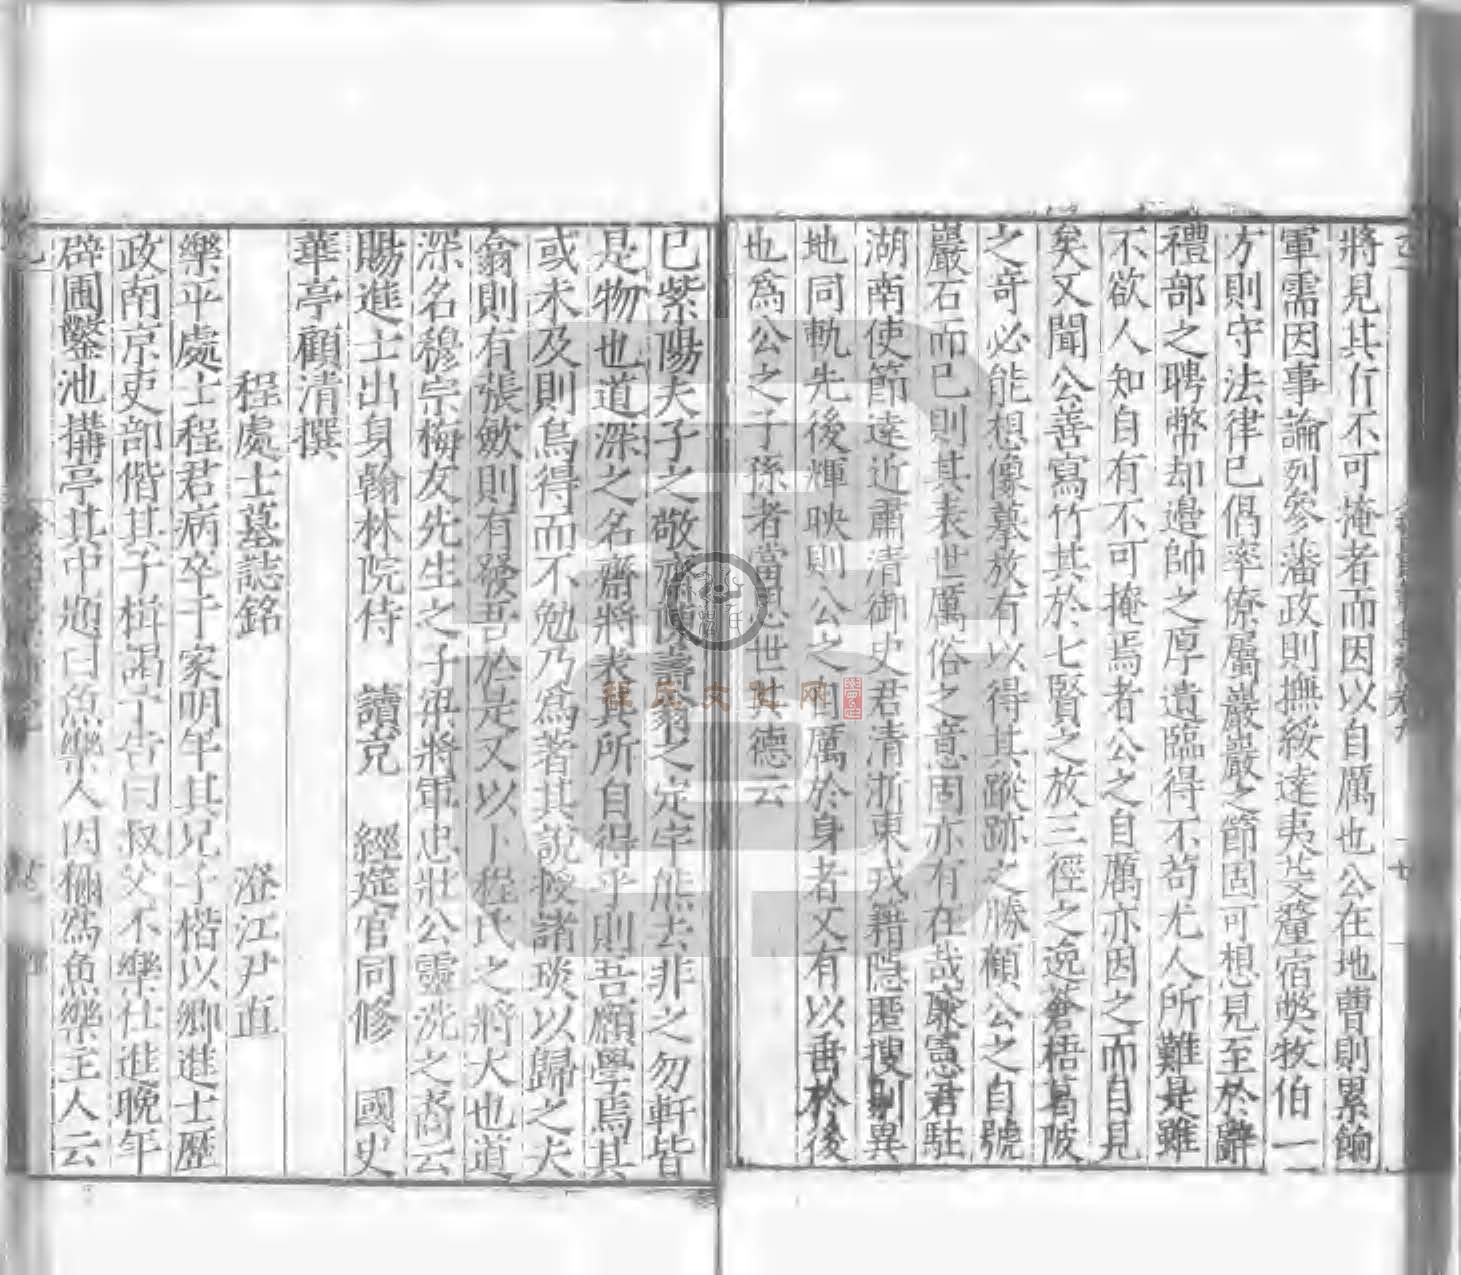 將見其行不可掩者而因以自厲也公在地曹則累餉
軍需因事論列參藩政則撫綏達夷芟釐宿弊牧伯一
方則守法律已倡率僚屬嚴嚴之節固可想見至於辭
禮部之聘幣却邊帥之厚遺臨得不苟尤人所難是雖
不欲人知自有不可掩焉者公之自厲亦因之而自見
矣又聞公善寫竹其於七賢之放三徑之逸蒼梧葛陂
之奇必能想像摹放有以得其蹤跡之勝顧公之自號
巖石而已則其表世厲俗之意固亦有在哉廉憲君駐
湖南使節逹近肅清御史君清浙東戎籍隱匿搜剔異
地同軌先後輝映則公之 厲於身者又有以垂於後
也爲公之子孫者當思世其德云
已紫陽夫子之敬齋 壽翁之定宇熊去非之勿軒皆
是物也道深之名齋將表其所自得乎則吾願學焉其
或未及則烏得而不勉乃爲著其說授諸琰以歸之夫
翁則有張歙則有發吾於是又以卜程氏之將大也道
深名穆宗梅友先生之子梁將軍忠壯公靈洗之裔云
賜進士出身翰林院侍 讀充 經筵官同修 國史
華亭顧清撰
程處士墓誌銘 澄江尹直
樂平處士程君病卒于家明年其兄子楷以鄉進士歷
政南京吏部偕其子楫謁予告曰叔父不樂仕進晚年
辟圃鑿池搆亭其中題曰魚樂人因稱爲魚樂主人云
程氏文化网